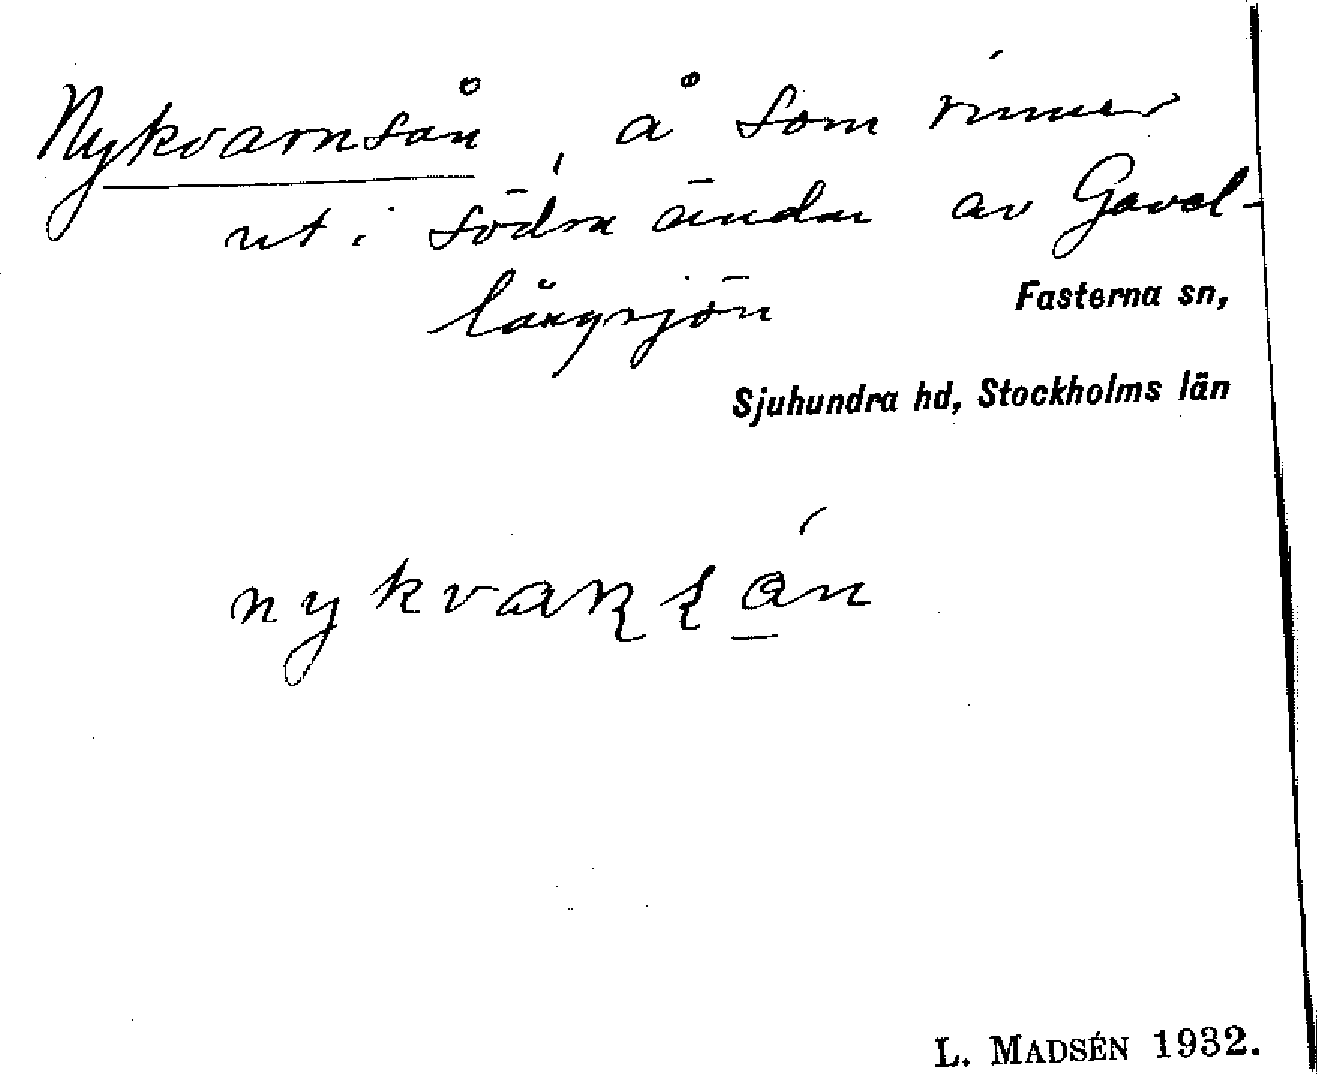 Nykvarnsån, å som rinner
ut i södra ändan av Gavel-
långsjön
Fasterna sn,
Sjuhundra hd, Stockholms län
L. MADSÉN 1932.